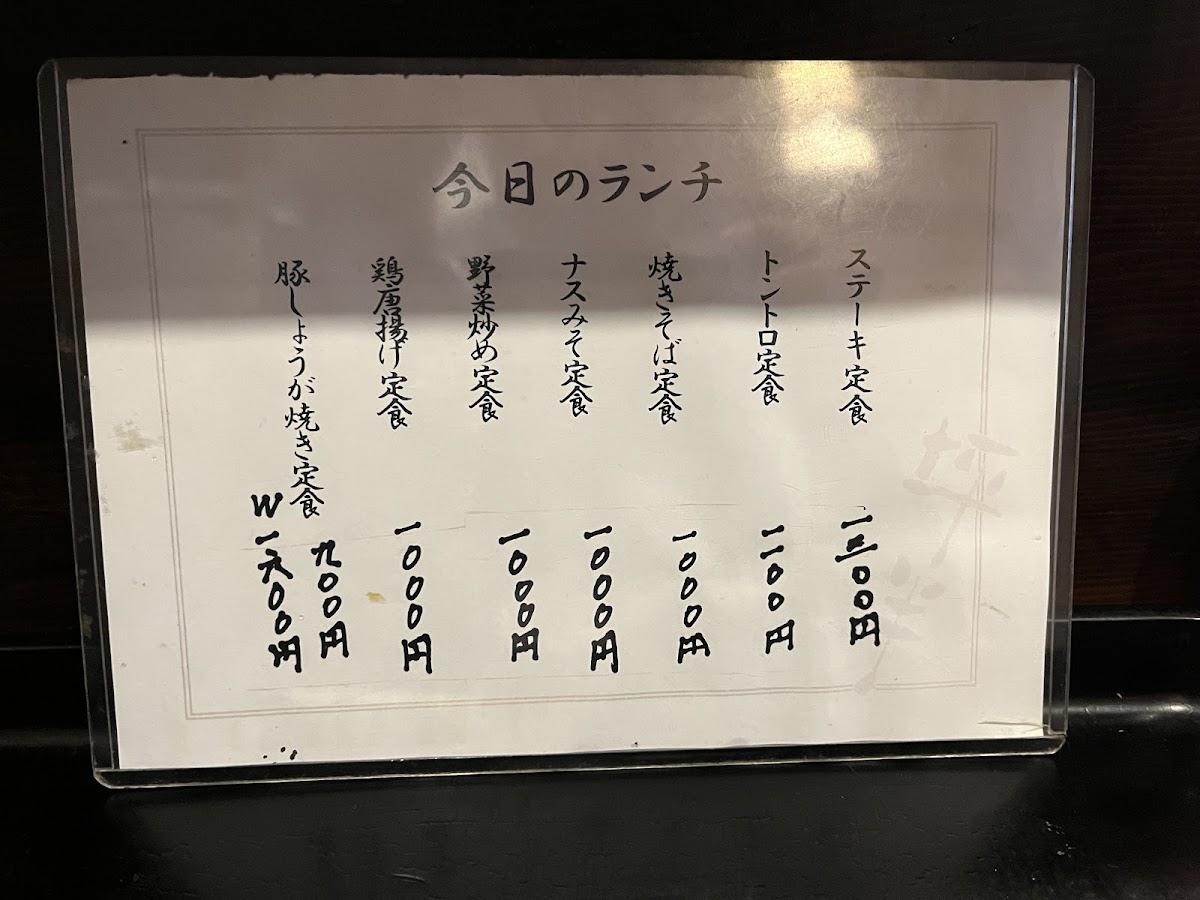 今日のランチ
ステーキ定食 一三〇〇円
トントロ定食 一一〇〇円
焼きそば定食 一〇〇〇円
ナスみそ定食 一〇〇〇円
野菜炒め定食 一〇〇〇円
鶏唐揚げ定食 一〇〇〇円
豚しょうが焼き定食 九〇〇円
W